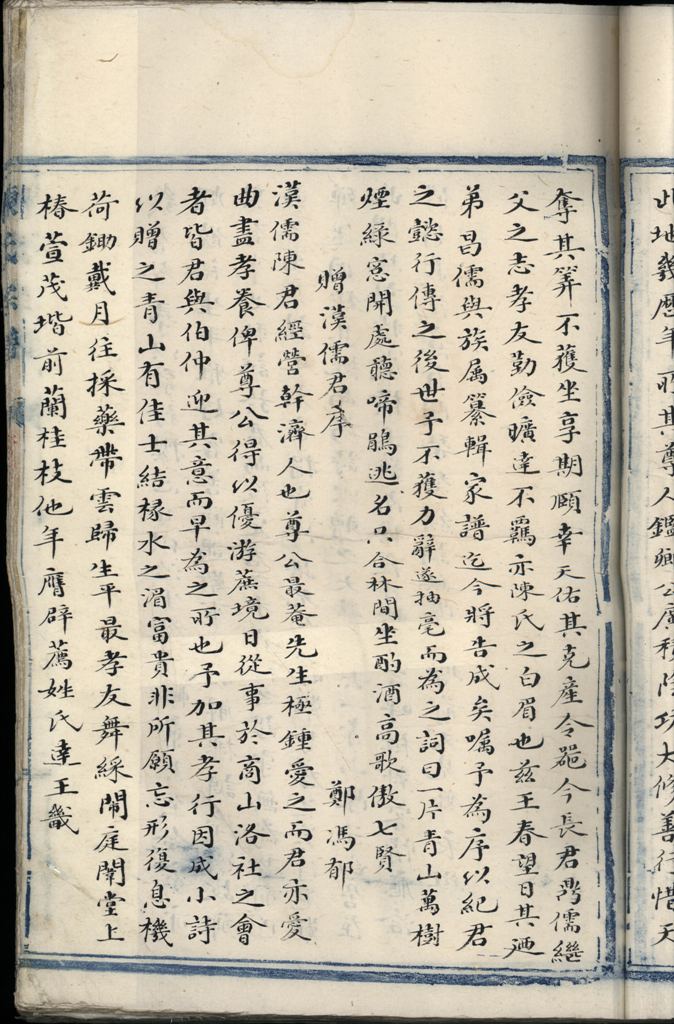 此地幾歷年所其尊人鑑卿公廣積陰功大修善行惜天
奪其筭不獲坐享期頤幸天佑其克產令器今長君爵儒繼
父之志孝友勤儉曠達不羈亦陳氏之白眉也茲王春望日其廼
弟昌儒與族属纂輯家譜迄今將告成矣囑予為序以紀君
之懿行傳之後世予不獲力辭遂抽毫而為之詞曰一片青山萬樹
煙綠窓開處聽啼鵑逃名只合林間坐酌酒高歌傲七賢
贈漢儒君序 鄭馮郁
漢儒陳君經營幹濟人也尊公最菴先生極鍾愛之而君亦愛
曲盡孝養俾尊公得以優游蔗境日從事於商山洛社之會
者皆君與伯仲迎其意而早為之所也予加其孝行因成小詩
以贈之青山有佳士結椽水之湄富貴非所願忘形復息機
荷鋤戴月往採藥帶雲歸生平最孝友舞綵鬧庭闈堂上
椿萱茂堦前蘭桂枝他年膺辟薦姓氏達王畿